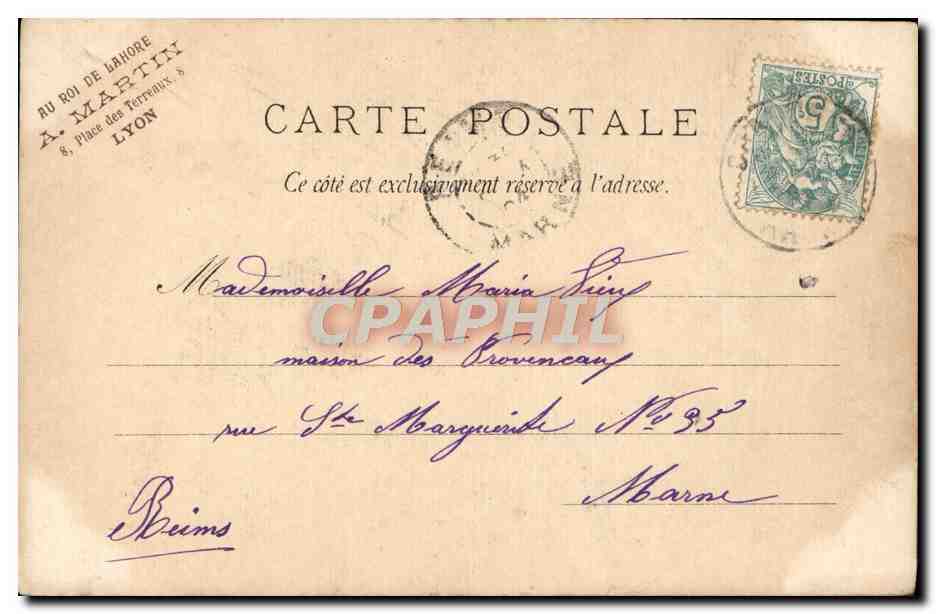 AU ROI DE LAHORE
A. MARTIN
8, Place des Terreaux, 8
LYON
POSTES
5
CARTE POSTALE
MARNE
Ce côté est exclusivement réservé a l'adresse.
Mademoiselle Maria
CPAPHIL
maison des Provencaux
rue Ste Marguerite No 35
Marne
Reims